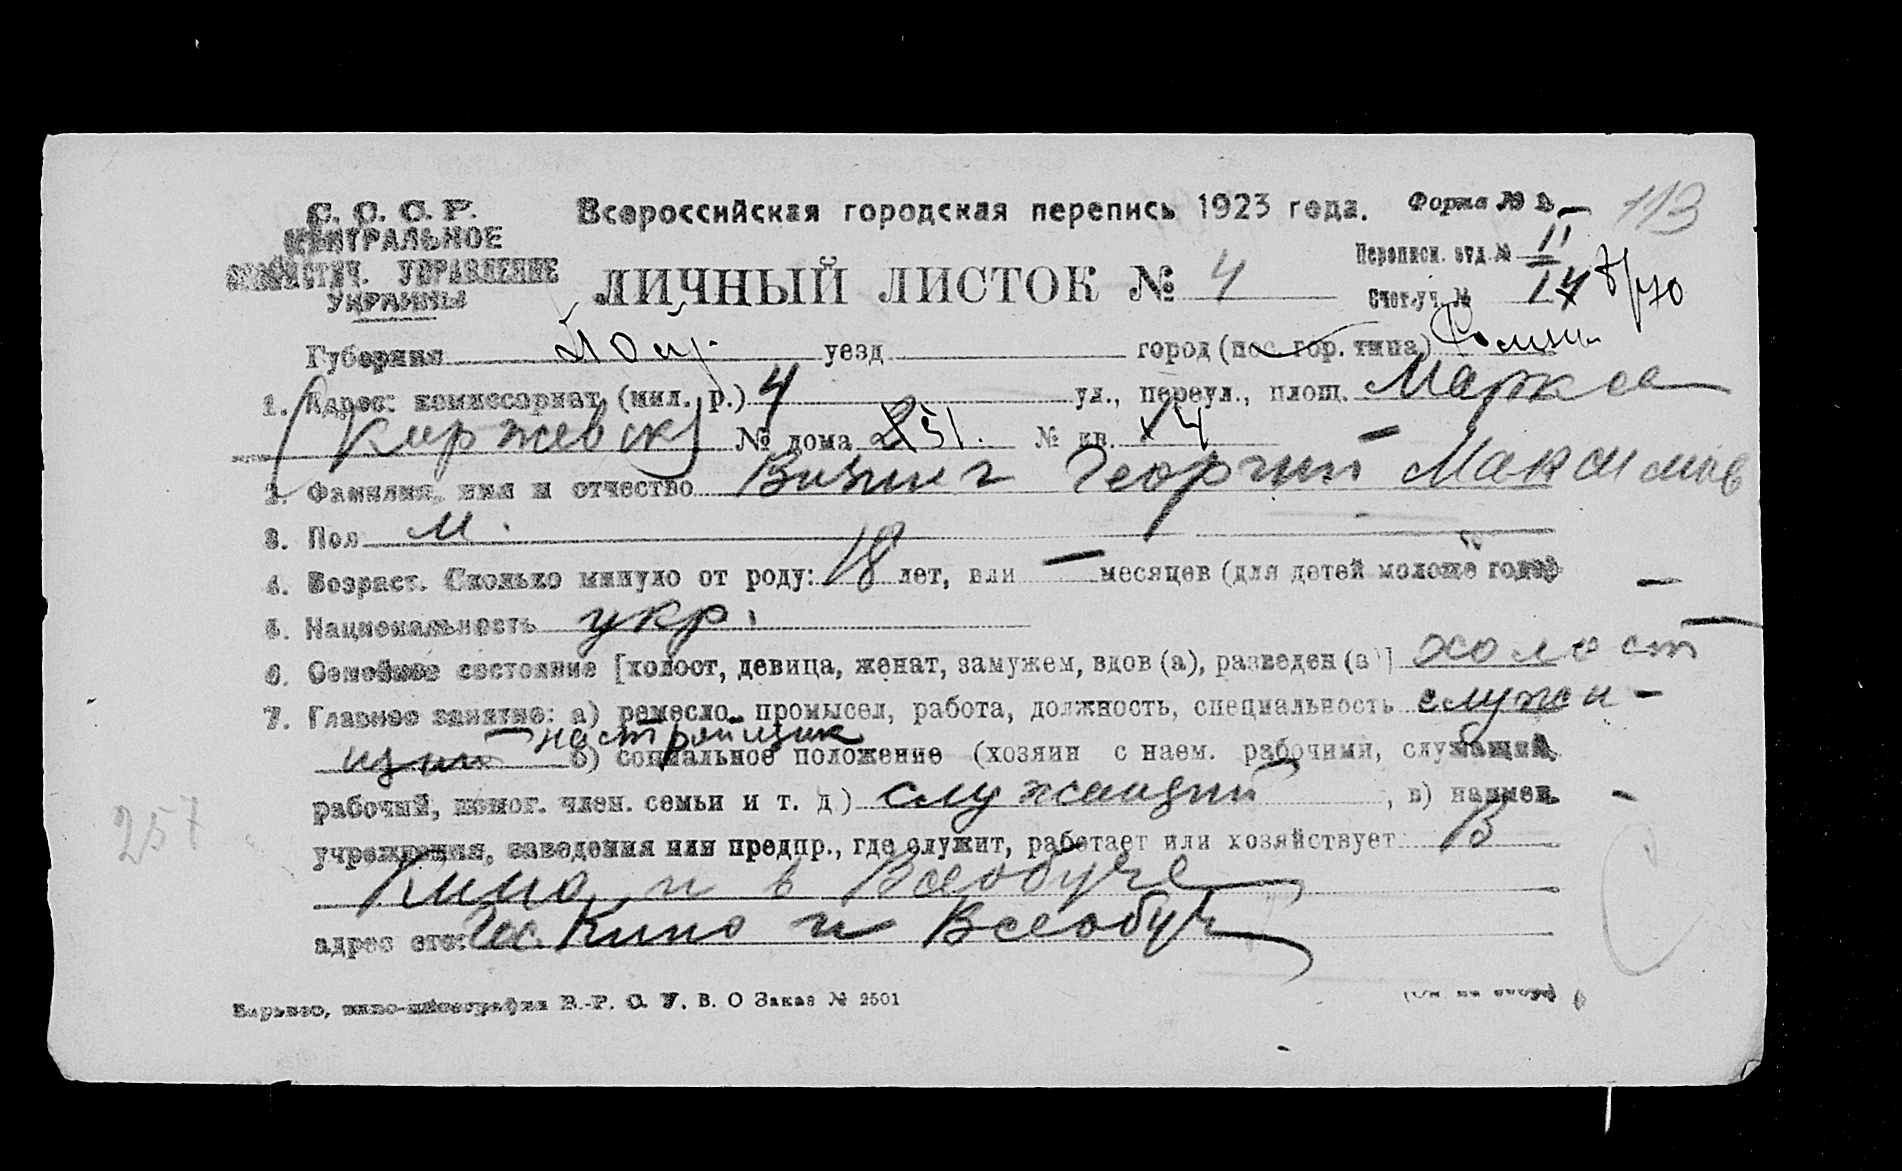 С. С. С. Р.
ЦЕНТРАЛЬНОЕ
СТАТИСТИЧ. УПРАВЛЕНИЕ
УКРАИНЫ
Всероссийская городская перепись 1923 года.
Форма № 113
ЛИЧНЫЙ ЛИСТОК № 4
Переписн. отд. № II
Счет. уч. № 14
Губерния уезд город (пос. гор. типа)
1. Адрес: комиссариат (мил. р.) 4 ул., переул., площ. Маркса
№ дома № кв. 14
2. Фамилия, имя и отчество Георгий Максимов
3. Пол М.
4. Возраст. Сколько минуло от роду: 18 лет, или — месяцев (для детей моложе года)
5. Национальность укр.
6. Семейное состояние [холост, девица, женат, замужем, вдов (а), разведен (а)] холост
7. Главное занятие: а) ремесло, промысел, работа, должность, специальность служа-
щий настройщик б) социальное положение (хозяин с наем. рабочими, служащий,
рабочий, помог. член. семьи и т. д.) служащий, в) наимен.
учреждения, заведения или предпр., где служит, работает или хозяйствует В
Кино и в Всеобуче
адрес его: Гос. Кино и Всеобуч
257
Харьков, В.-Р. С. У. В. О Заказ № 2501